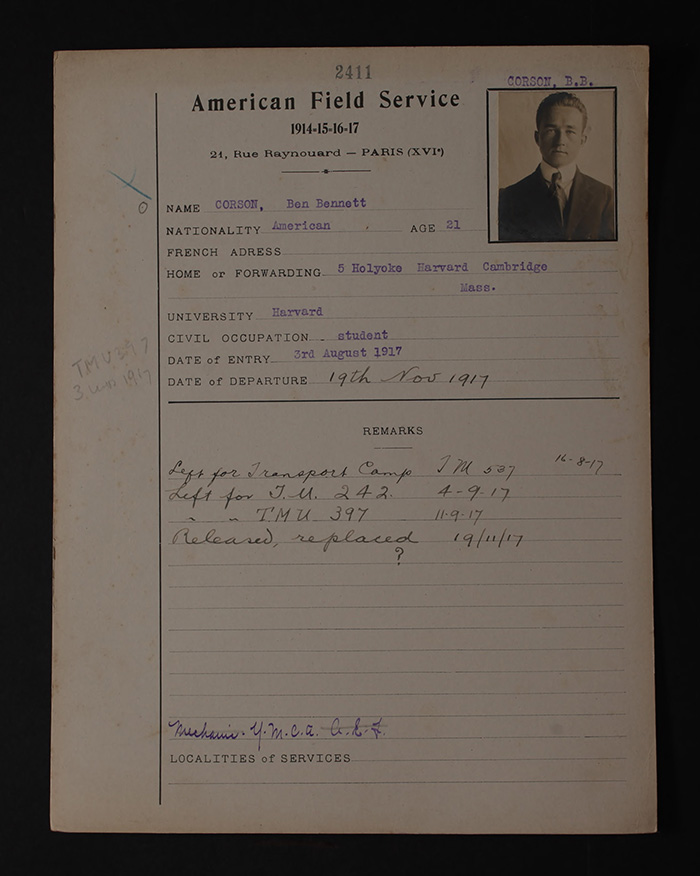 2411
CORSON, B.B.
American Field Service
1914-15-16-17
21, Rue Raynouard — PARIS (XVIe)
O
NAME CORSON, Ben Bennett
NATIONALITY American AGE 21
FRENCH ADRESS
HOME or FORWARDING 5 Holyoke Harvard Cambridge
Mass.
UNIVERSITY Harvard
CIVIL OCCUPATION student
DATE of ENTRY 3rd August 1917
DATE of DEPARTURE 19th Nov 1917
TMU 397
1917
REMARKS
Left for Transport Camp TM 537 16-8-17
Left for T.U. 242. 4-9-17
" " TMU 397 11-9-17
Released, replaced 19/11/17
?
Mechanic. Y.M.C.A. A.E.F.
LOCALITIES of SERVICES